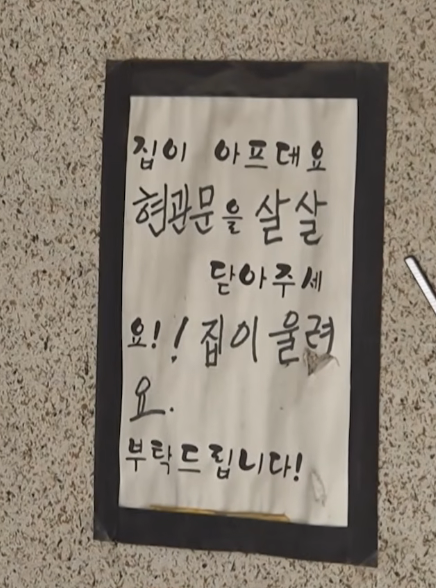 집이 아프대요
현관문을 살살
닫아주세
요!! 집이 울려
요.
부탁드립니다!